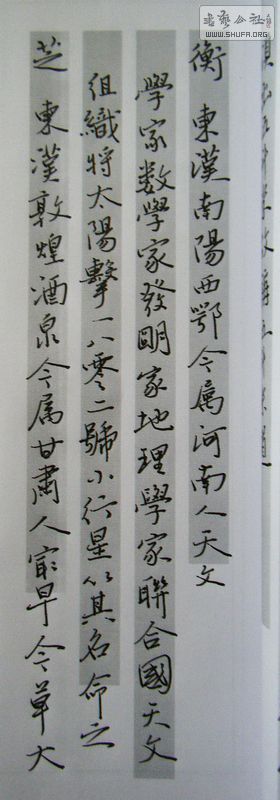 書藝公社
WWW.SHUFA.ORG
衡東漢南陽西鄂今属河南人天文
學家数學家發明家地理學家聯合國天文
组織将太陽擊一八零二號小行星以其名命之
芝東漢敦煌酒泉今属甘肅人㝡早今草大